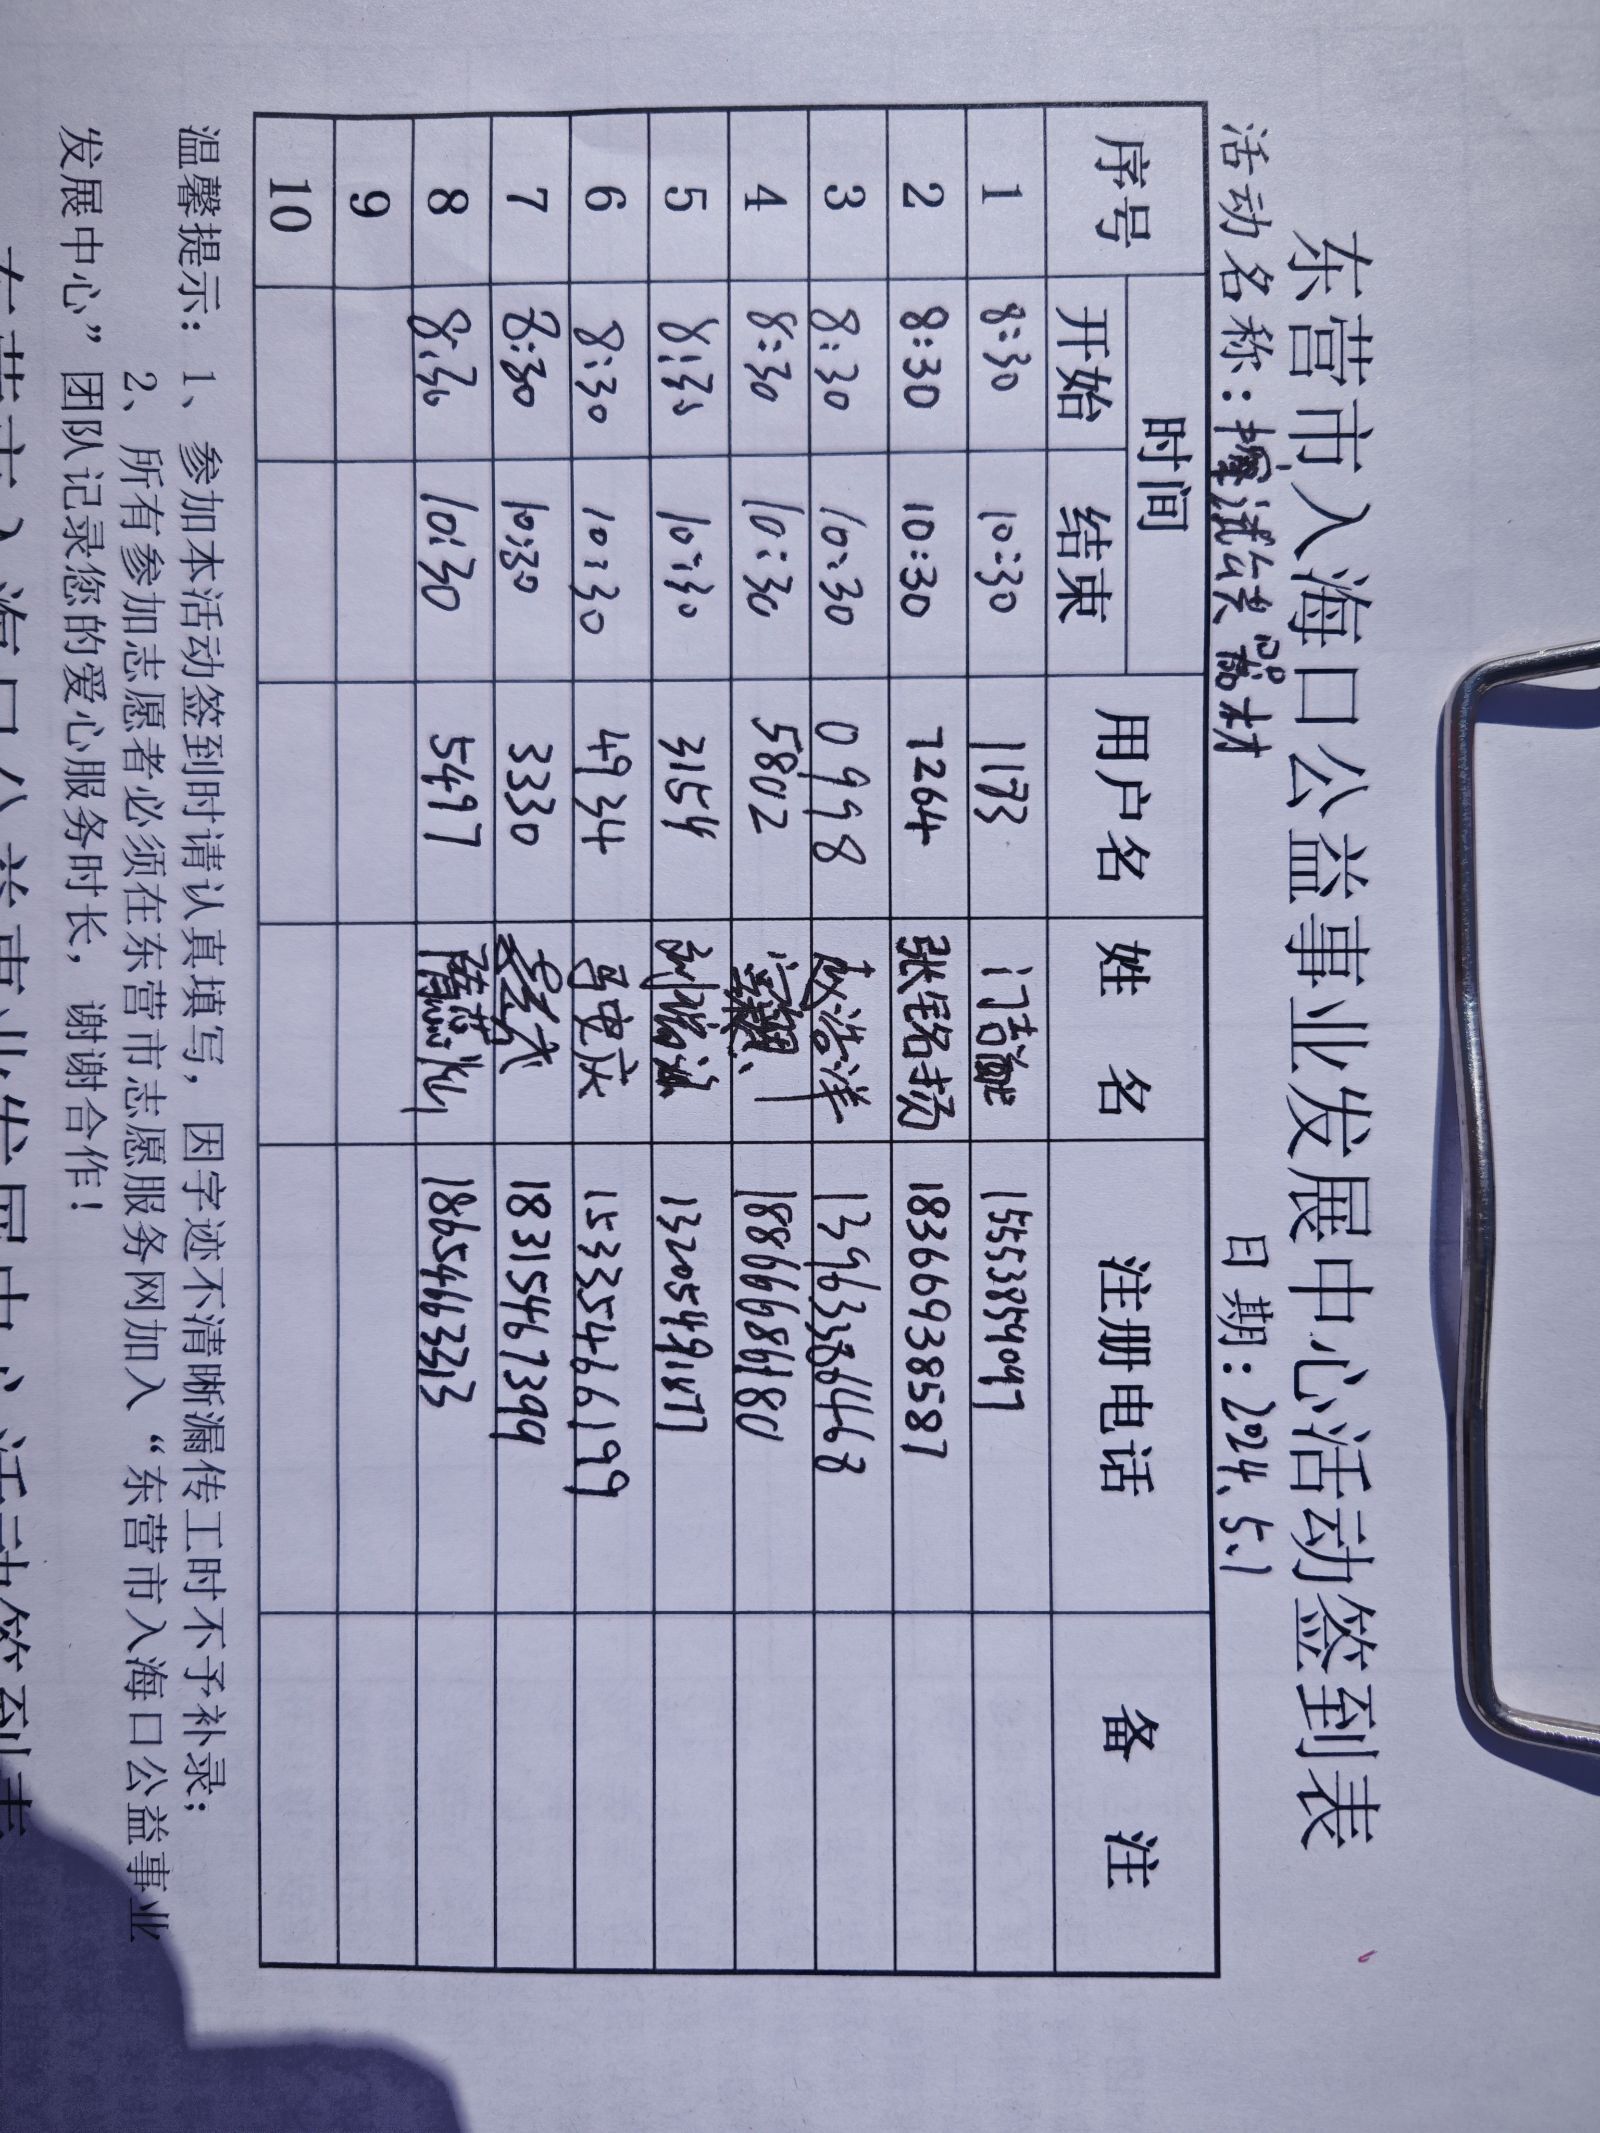 东营市入海口公益事业发展中心活动签到表
活动名称：擦拭公共器材 日期：2024.5.1
序号 时间 用户名 姓 名 注册电话 备 注
开始 结束
1 8:30 10:30 1173 15553859097
2 8:30 10:30 7264 张铭扬 18366938587
3 8:30 10:30 0998 赵浩洋 13963386468
4 8:30 10:30 5802 18866686180
5 8:30 10:30 3154 13205491877
6 8:30 10:30 4934 15335466199
7 8:30 10:30 3330 18315467399
8 8:30 10:30 5497 18654663313
9
10
温馨提示：1、参加本活动签到时请认真填写，因字迹不清晰漏传工时不予补录；
2、所有参加志愿者必须在东营市志愿服务网加入“东营市入海口公益事业
发展中心”团队记录您的爱心服务时长，谢谢合作！
东营市入海口公益事业发展中心活动签到表